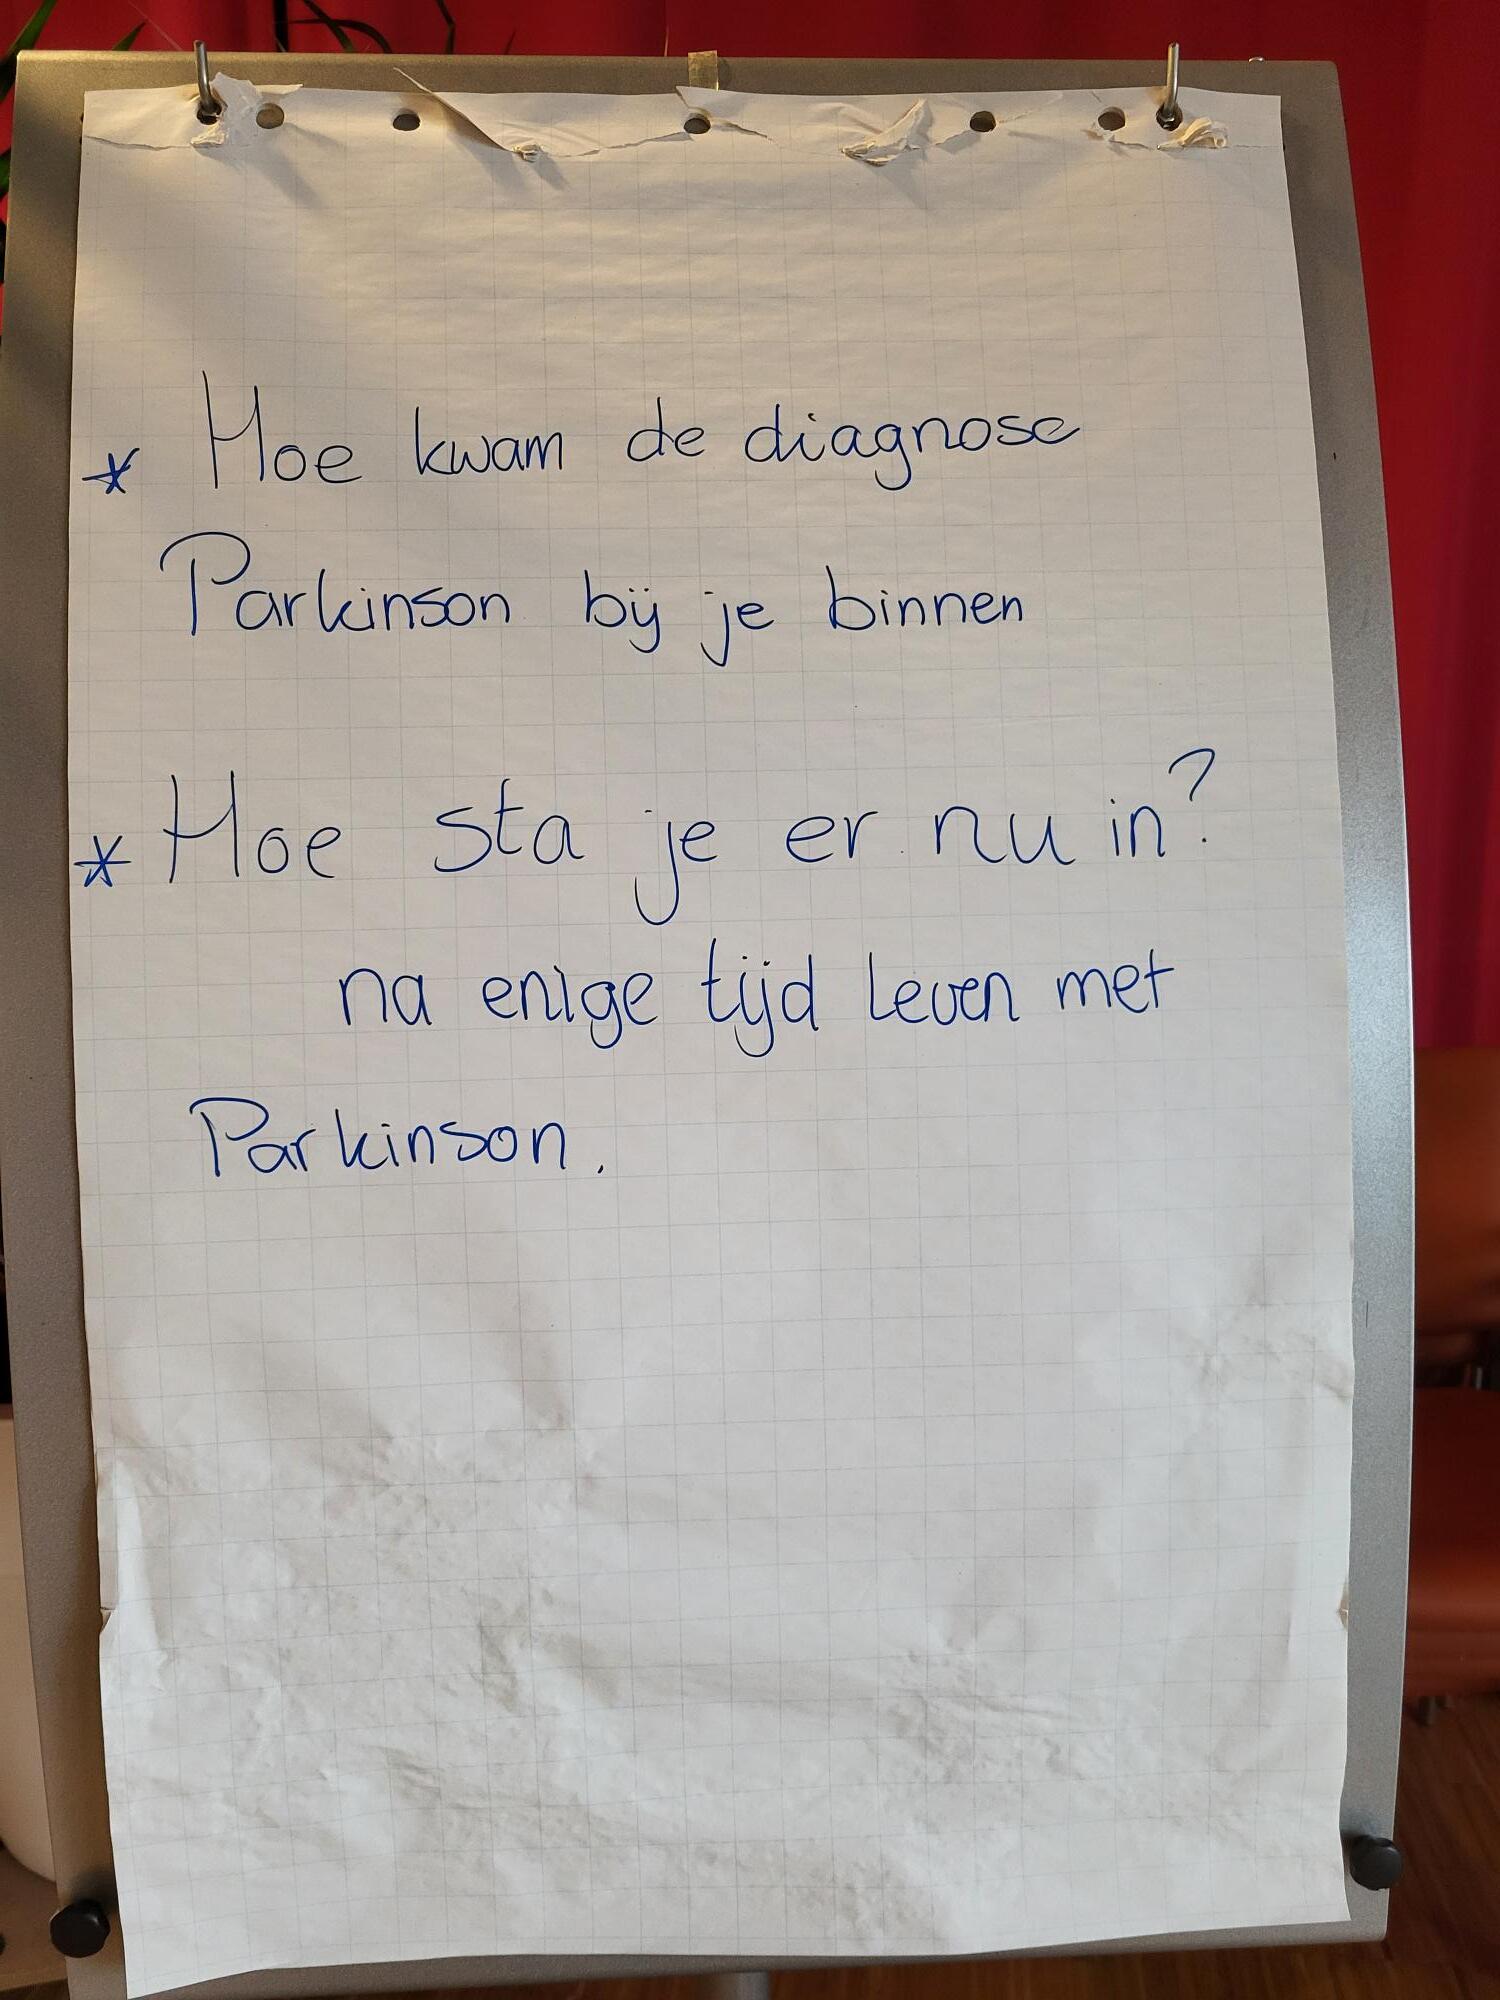 * Hoe kwam de diagnose
Parkinson bij je binnen
* Hoe sta je er nu in?
na enige tijd leven met
Parkinson.